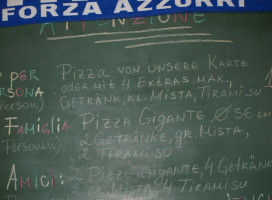 FORZA AZZURRI
ATTENZIONE
PER PIZZA VON UNSERE KARTE
PERSONA: ODER MIT 4 EXTRAS MAX.,
Person) GETRÄNK, KL. MISTA, TIRAMISU
FAMIGLIA PIZZA GIGANTE Ø 50 CM
Personen) 2 GETRÄNKE, GR. MISTA,
2 TIRAMISU
AMICI: PIZZE GIGANTE, 4 GETRÄNK
Personen) MISTA, 4 TIRAMISU